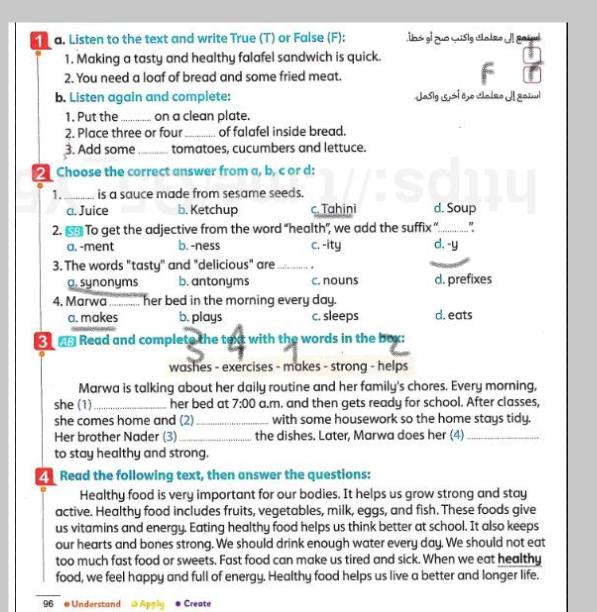 1 a. Listen to the text and write True (T) or False (F): استمع إلى معلمك واكتب صح أو خطأ.
1. Making a tasty and healthy falafel sandwich is quick. T
2. You need a loaf of bread and some fried meat. F F
b. Listen again and complete: استمع إلى معلمك مرة أخرى واكمل.
1. Put the ............ on a clean plate.
2. Place three or four ............ of falafel inside bread.
3. Add some ............ tomatoes, cucumbers and lettuce.
2 Choose the correct answer from a, b, c or d:
1. ............ is a sauce made from sesame seeds.
a. Juice b. Ketchup c. Tahini d. Soup
2. SB To get the adjective from the word "health", we add the suffix "............".
a. -ment b. -ness c. -ity d. -y
3. The words "tasty" and "delicious" are ............ .
a. synonyms b. antonyms c. nouns d. prefixes
4. Marwa ............ her bed in the morning every day.
a. makes b. plays c. sleeps d. eats
3 AB Read and complete the text with the words in the box:
3 4 1 2
washes - exercises - makes - strong - helps
Marwa is talking about her daily routine and her family's chores. Every morning,
she (1) ........................ her bed at 7:00 a.m. and then gets ready for school. After classes,
she comes home and (2) ........................ with some housework so the home stays tidy.
Her brother Nader (3) ........................ the dishes. Later, Marwa does her (4) ........................
to stay healthy and strong.
4 Read the following text, then answer the questions:
Healthy food is very important for our bodies. It helps us grow strong and stay
active. Healthy food includes fruits, vegetables, milk, eggs, and fish. These foods give
us vitamins and energy. Eating healthy food helps us think better at school. It also keeps
our hearts and bones strong. We should drink enough water every day. We should not eat
too much fast food or sweets. Fast food can make us tired and sick. When we eat healthy
food, we feel happy and full of energy. Healthy food helps us live a better and longer life.
96 Understand Apply Create